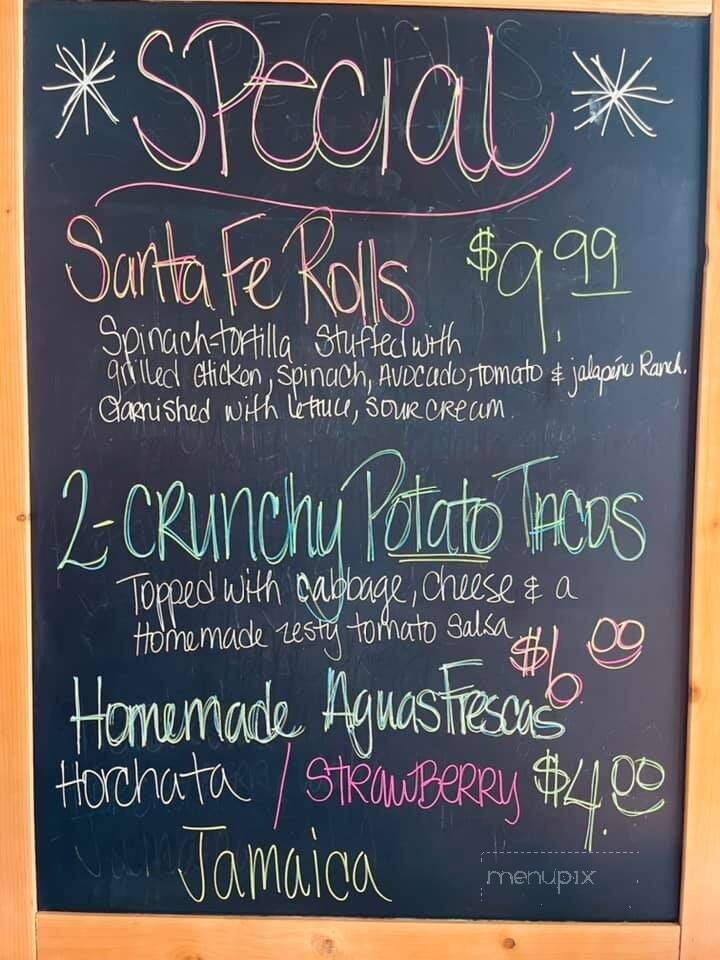 SPecial
Santa Fe Rolls $9.99
Spinach-tortilla Stuffed with
grilled chicken, spinach, Avocado, tomato & jalapeño Ranch.
Garnished with lettuce, sour cream.
2-Crunchy Potato Tacos
Topped with cabbage, cheese & a
Homemade zesty tomato Salsa $6.00
Homemade Aguas Frescas
Horchata / STRAWBERRY $4.00
Jamaica
menupix